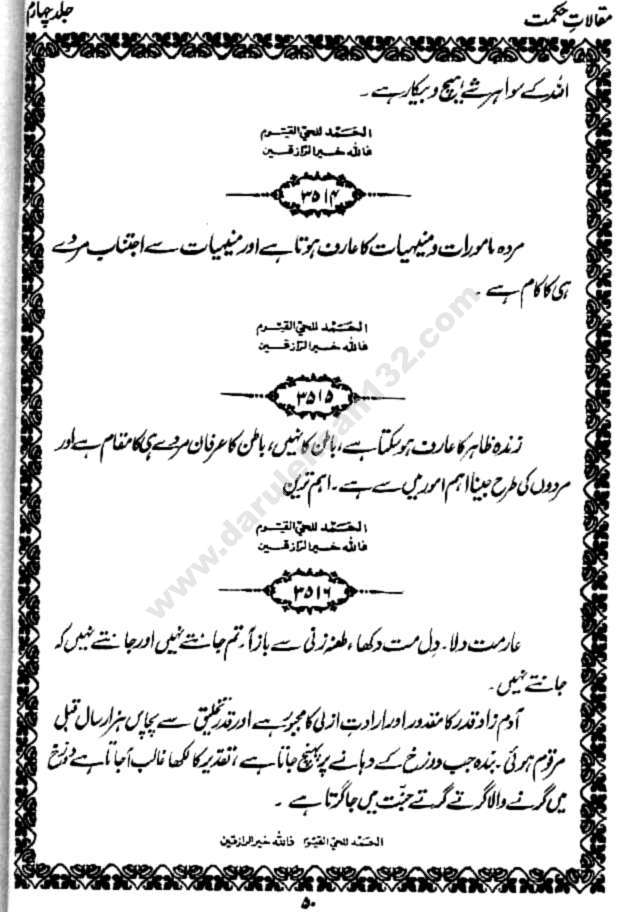 مقالاتِ حکمت
جلد چہارم
اللہ کے سوا ہر شے ہیچ و بیکار ہے ۔
الحَمد للحیّ القیّوم
فاللہ خیر الرازقین
۳۵۱۴
مردہ مامورات و منہیات کا عارف ہوتا ہے اور منہیات سے اجتناب مردے
ہی کا کام ہے ۔
الحَمد للحیّ القیّوم
فاللہ خیر الرازقین
۳۵۱۵
زندہ ظاہر کا عارف ہو سکتا ہے، باطن کا نہیں، باطن کا عرفان مردے ہی کا مقام ہے اور
مردوں کی طرح جینا اہم امور میں سے ہے۔ اہم ترین
الحَمد للحیّ القیّوم
فاللہ خیر الرازقین
۳۵۱۶
عار مت دلا۔ دِل مت دکھا، طعنہ زنی سے باز آ۔ تم جانتے نہیں اور جانتے نہیں کہ
جانتے نہیں۔
آدم زاد قدر کا مقدور اور ارادتِ ازلی کا مجبور ہے اور قدر تخلیق سے پچاس ہزار سال قبل
مرقوم ہوئی۔ بندہ جب دوزخ کے دہانے پر پہنچ جاتا ہے، تقدیر کا لکھا غالب آجاتا ہے دوزخ
میں گرنے والا گرتے گرتے جنّت میں جا گرتا ہے ۔
الحَمد للحیّ القیّوم فاللہ خیر الرازقین
۵۰
www.darulehsan132.com